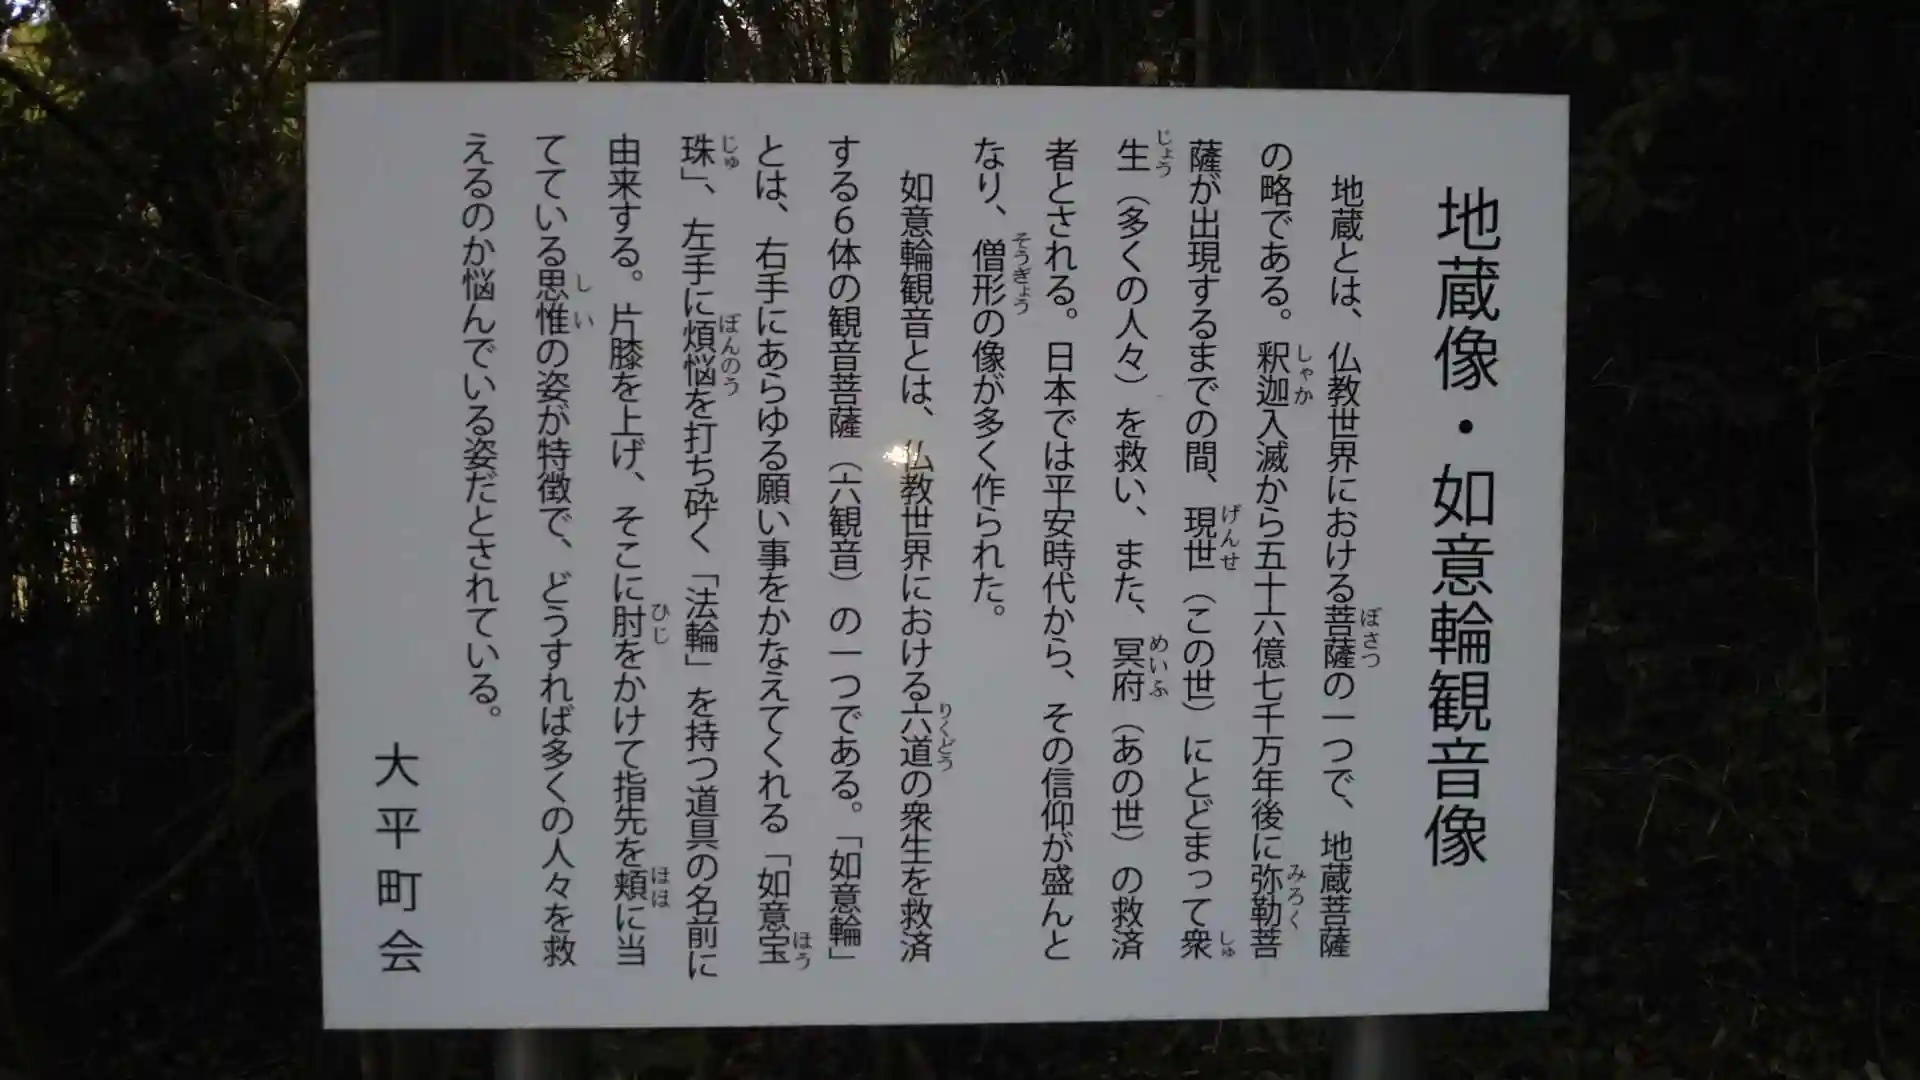 地蔵像・如意輪観音像
地蔵とは、仏教世界における菩薩の一つで、地蔵菩薩
の略である。釈迦入滅から五十六億七千万年後に弥勒菩
薩が出現するまでの間、現世（この世）にとどまって衆
生（多くの人々）を救い、また、冥府（あの世）の救済
者とされる。日本では平安時代から、その信仰が盛んと
なり、僧形の像が多く作られた。
如意輪観音とは、仏教世界における六道の衆生を救済
する6体の観音菩薩（六観音）の一つである。「如意輪」
とは、右手にあらゆる願い事をかなえてくれる「如意宝
珠」、左手に煩悩を打ち砕く「法輪」を持つ道具の名前に
由来する。片膝を上げ、そこに肘をかけて指先を頬に当
てている思惟の姿が特徴で、どうすれば多くの人々を救
えるのか悩んでいる姿だとされている。
大平町会